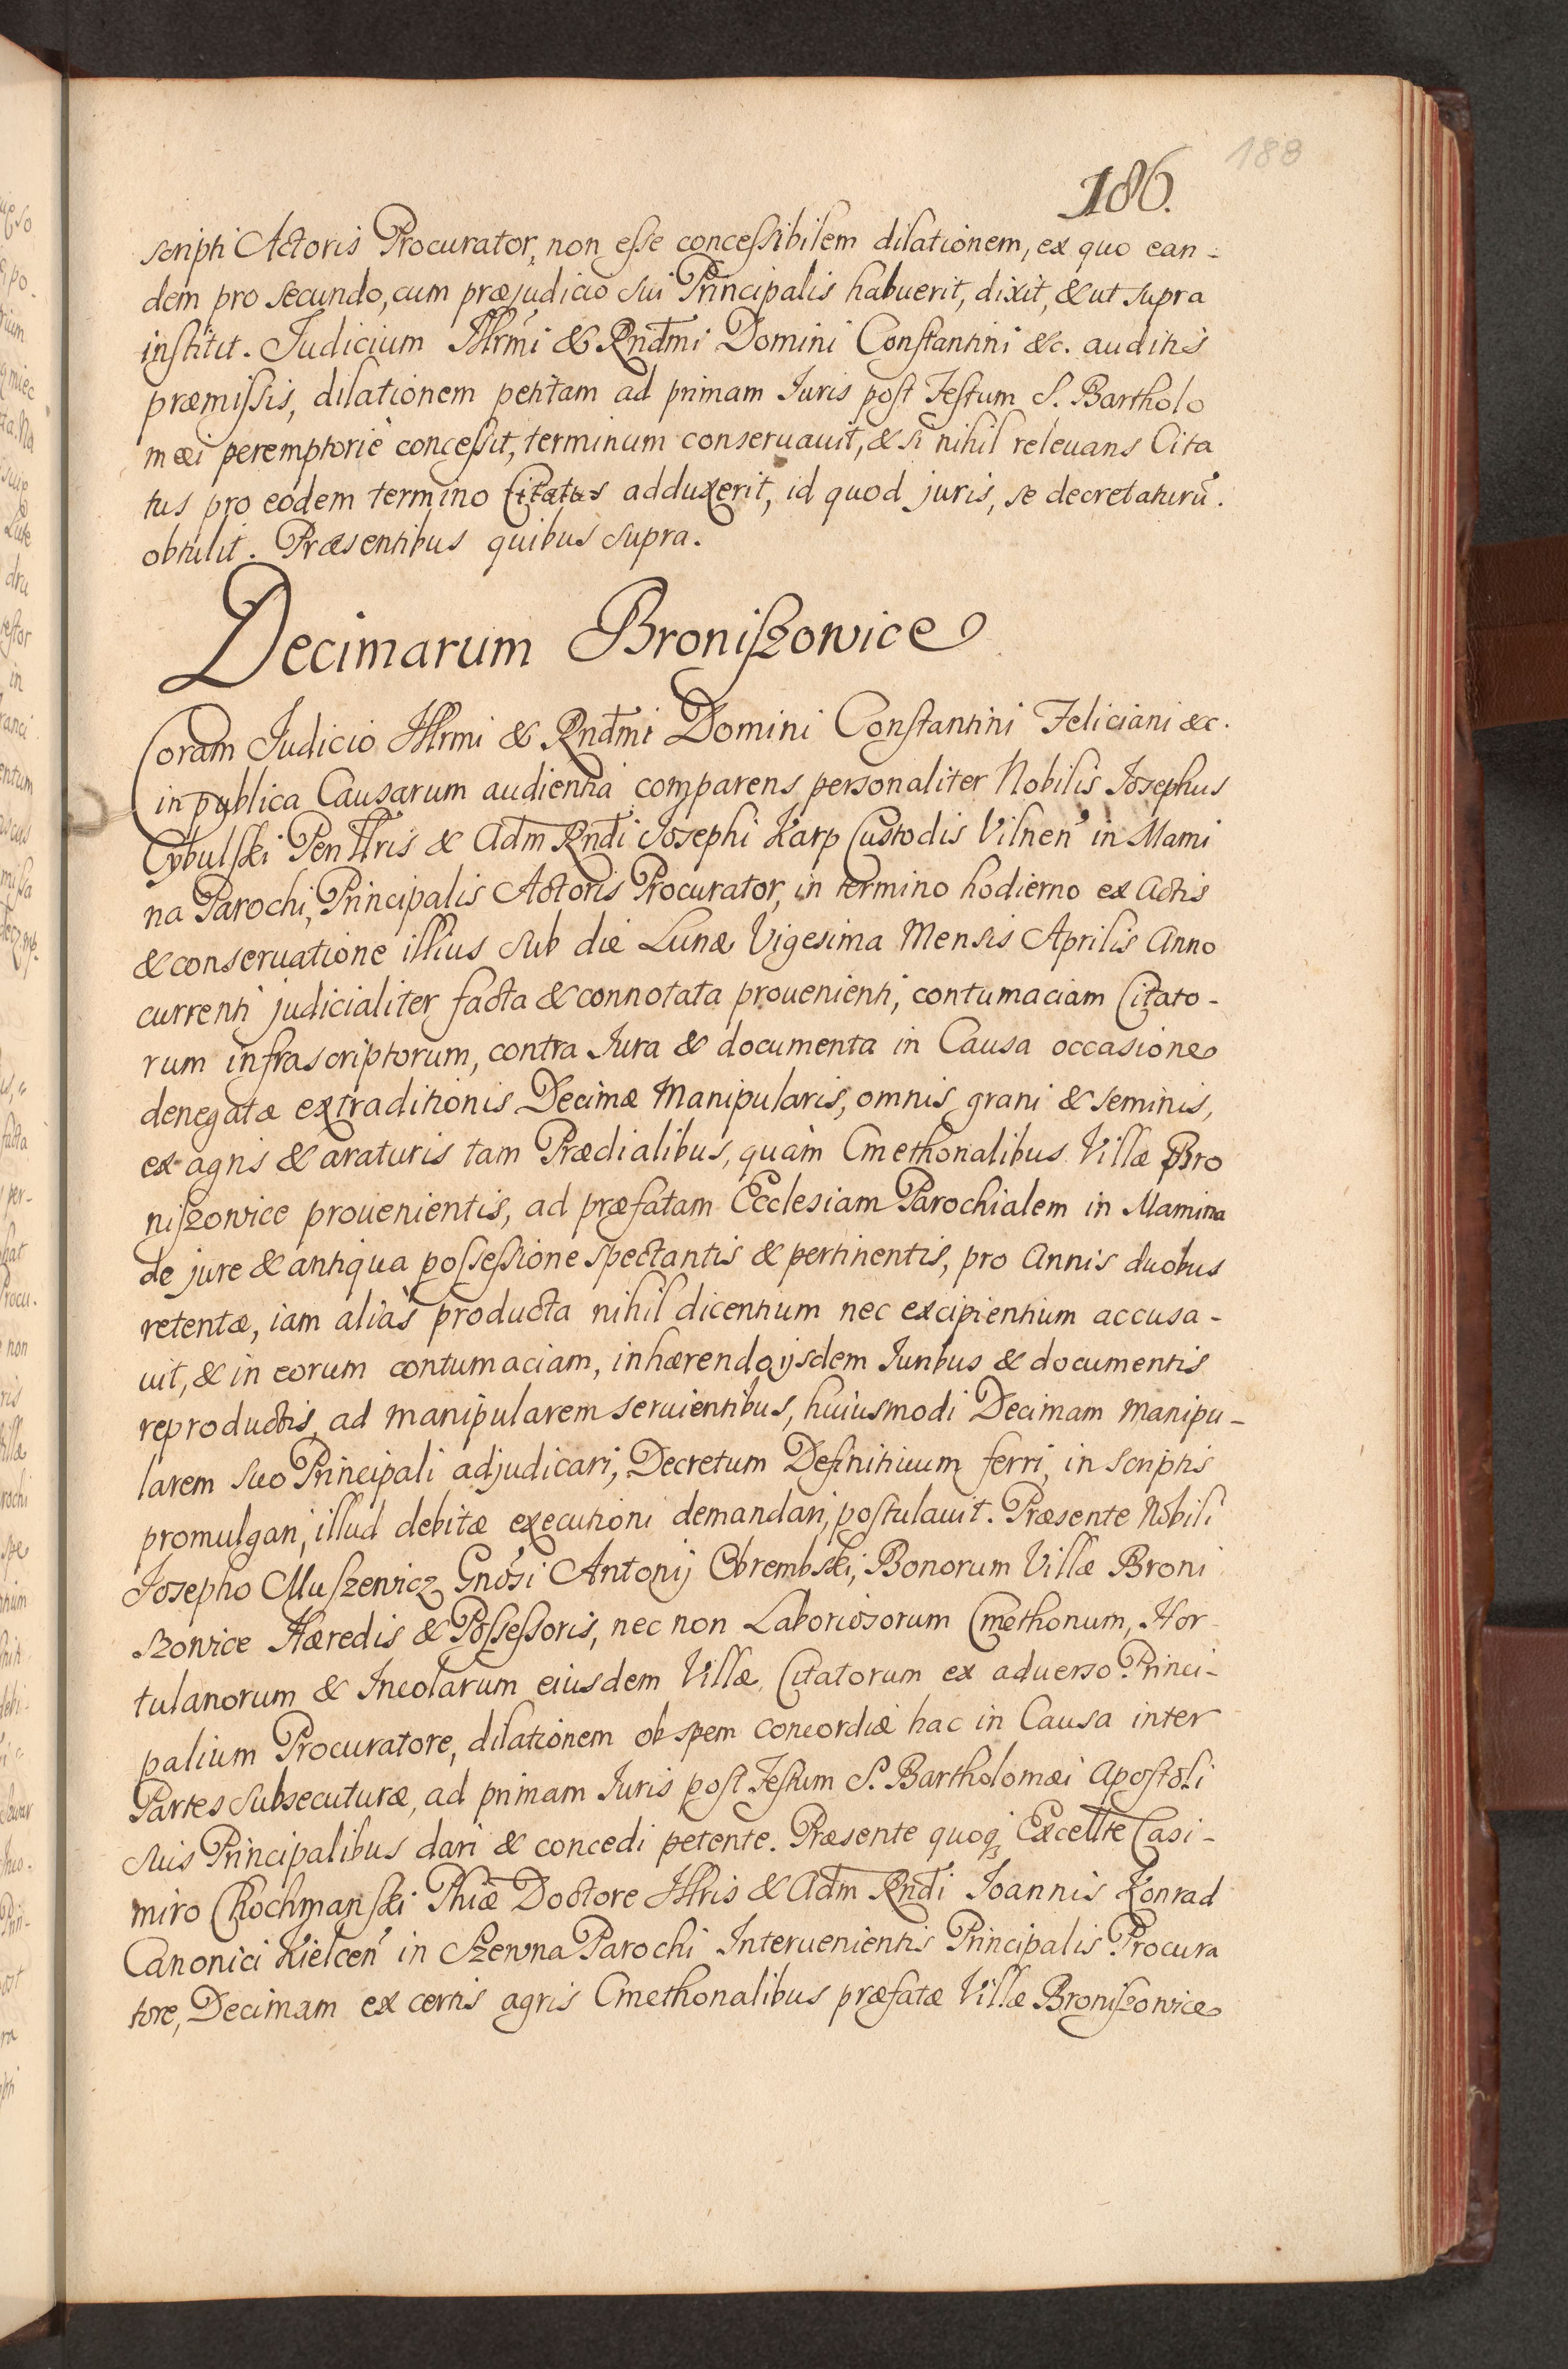 188
186.
scripti Actoris Procurator, non esse concessibilem dilationem, ex quo ean-
dem pro secundo, cum præjudicio sui Principalis habuerit, dixit, & ut supra
institit. Judicium Illrmi & Rndmi Domini Constantini &c. auditis
præmissis, dilationem petitam ad primam Juris post Festum S. Bartholo
mæi peremptoriè concessit, terminum conseruauit, & si nihil releuans Cita
tus pro eodem termino Citatus adduxerit, id quod juris, se decretaturũ.
obtulit. Præsentibus quibus supra.
Decimarum Broniszowice
Coram Judicio Illrmi & Rndmi Domini Constantini Feliciani &c.
in publica Causarum audientia comparens personaliter Nobilis Josephus
Cybulski Pen Illris & Adm Rndi Josephi Karp Custodis Vilnen in Mami
na Parochi, Principalis Actoris Procurator, in termino hodierno ex Actis
& conseruatione illius sub die Lunæ Vigesima Mensis Aprilis Anno
currenti judicialiter facta & connotata prouenienti, contumaciam Citato-
rum infrascriptorum, contra Jura & documenta in Causa occasione
denegatæ extraditionis Decimæ Manipularis, omnis grani & seminis,
ex agris & araturis tam Prædialibus, quàm Cmethonalibus Villæ Bro
niszowice prouenientis, ad præfatam Ecclesiam Parochialem in Mamina
de jure & antiqua possessione spectantis & pertinentis, pro Annis duobus
retentæ, iam aliàs producta nihil dicentium nec excipientium accusa-
uit, & in eorum contumaciam, inhærendo ijsdem Juribus & documentis
reproductis, ad manipularem seruientibus, huiusmodi Decimam manipu-
larem suo Principali adjudicari, Decretum Definitiuum ferri, in scriptis
promulgari, illud debitæ executioni demandari, postulauit. Præsente Nobili
Josepho Muszewicz Gnosi Antonij Obrembski, Bonorum Villæ Broni
szowice Hæredis & Possessoris, nec non Laboriosorum Cmethonum, Hor
tulanorum & Incolarum eiusdem Villæ, Citatorum ex aduerso Princi-
palium Procuratore, dilationem ob spem concordiæ hac in Causa inter
Partes subsecuturæ, ad primam Juris post Festum S. Bartholomæi Apostoli
suis Principalibus dari & concedi petente. Præsente quoq; Excellte Casi-
miro Chochmanski Phiæ Doctore Illris & Adm Rndi Joannis Konrad
Canonici Kielcen in Szewna Parochi Interuenientis Principalis Procura
tore, Decimam ex certis agris Cmethonalibus præfatæ Villæ Broniszowice